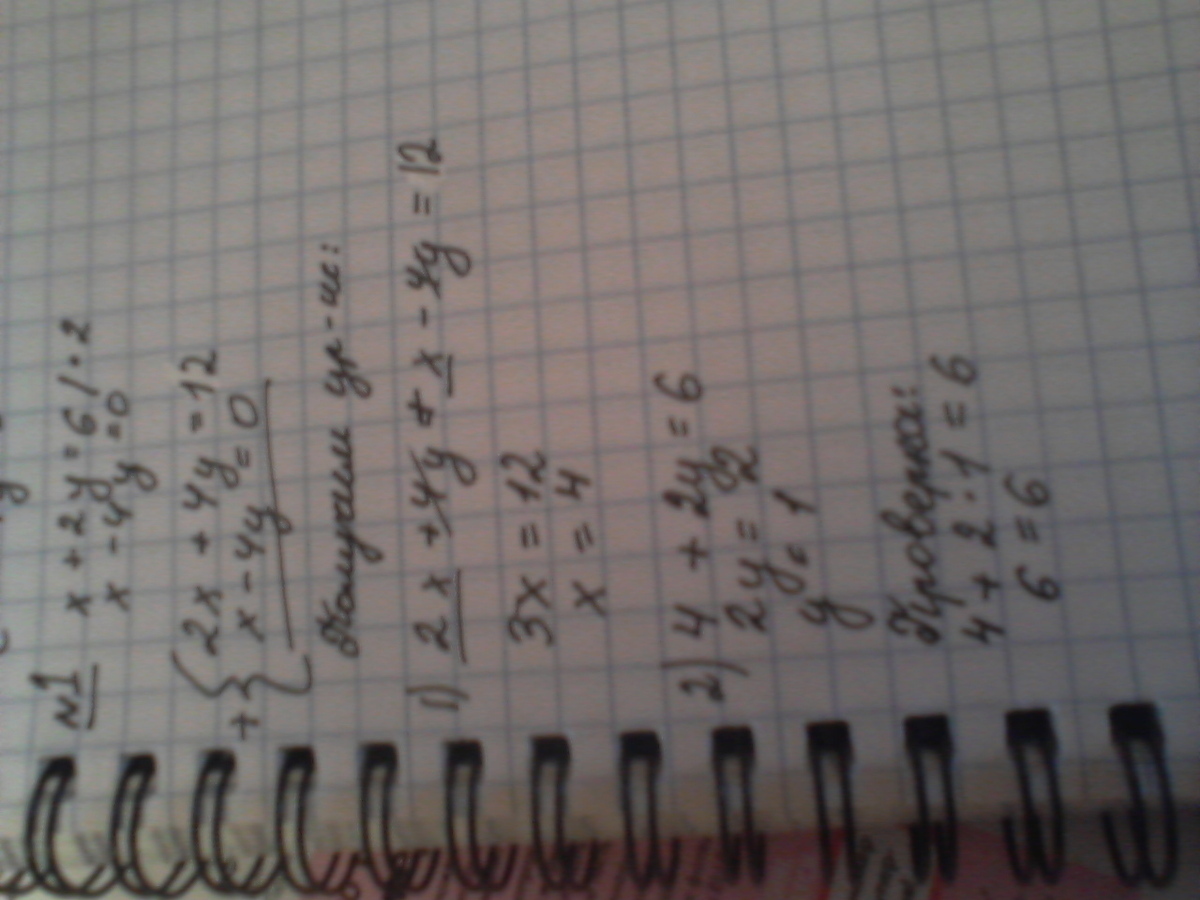 №1 x + 2y = 6 | · 2
x - 4y = 0
+ { 2x + 4y = 12
x - 4y = 0
Получаем ур-ие:
1) 2x + 4y + x - 4y = 12
3x = 12
x = 4
2) 4 + 2y = 6
2y = 2
y = 1
Проверка:
4 + 2 · 1 = 6
6 = 6